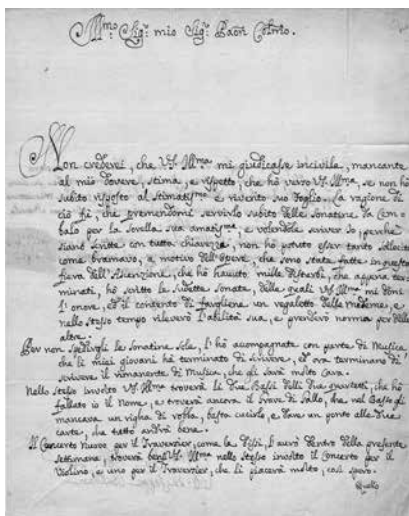 Illmo. Sigr. mio Sigr. Pron Colmo.
Non crederei, che VS. Illma. mi giudicasse incivile, mancante
al mio dovere, stima, e rispetto, che hò verso VS. Illma. se non hò
subito risposto al stimatismo. e riverito suo foglio. La ragione di
ciò fù, che premendomi servirlo subito delle Sonatine da Cem
balo per la Sorella sua amatisma. e volendole scriver io, perche
siano scritte con tutta chiarezza, non hò potuto esser tanto sollecito
come bramavo, a motivo dell'Opere, che sono state fatte in questa
fiera dell'Ascensione, che hò havuto mille disturbi, che appena ter
minati, hò scritto le sudette Sonate, delle quali VS. Illma. mi doni
l'onore, et il contento di fargliene un regaletto delle medeme, e
nello stesso tempo rileverò l'abilità sua, e prenderò norma per delle
altre.
Per non spedirgli le Sonatine sole, l'hò acompagnate con parte di Musica
che li miei giovani hà terminato di scrivere, et ora terminano di
scrivere il rimanente di Musica, che gli sarà molto Cara.
Nello stesso involto VS. Illma. troverà li due Bassi delli due quartetti, che hò
fallato io il Nome, e troverà ancora il breve di Sallo, che nel Basso gli
mancava un righa di robba, basta cucirlo, e dare un ponto alle due
carte, che tutto andrà bene.
Il Concerto Nuovo per il Traversier, come la dissi, l'averà dentro della presente
settimana, troverà bensì VS. Illma. nello stesso involto il Concerto per il
Violino, e uno per il Traversier, che li piacerà molto, così spero.
Quello